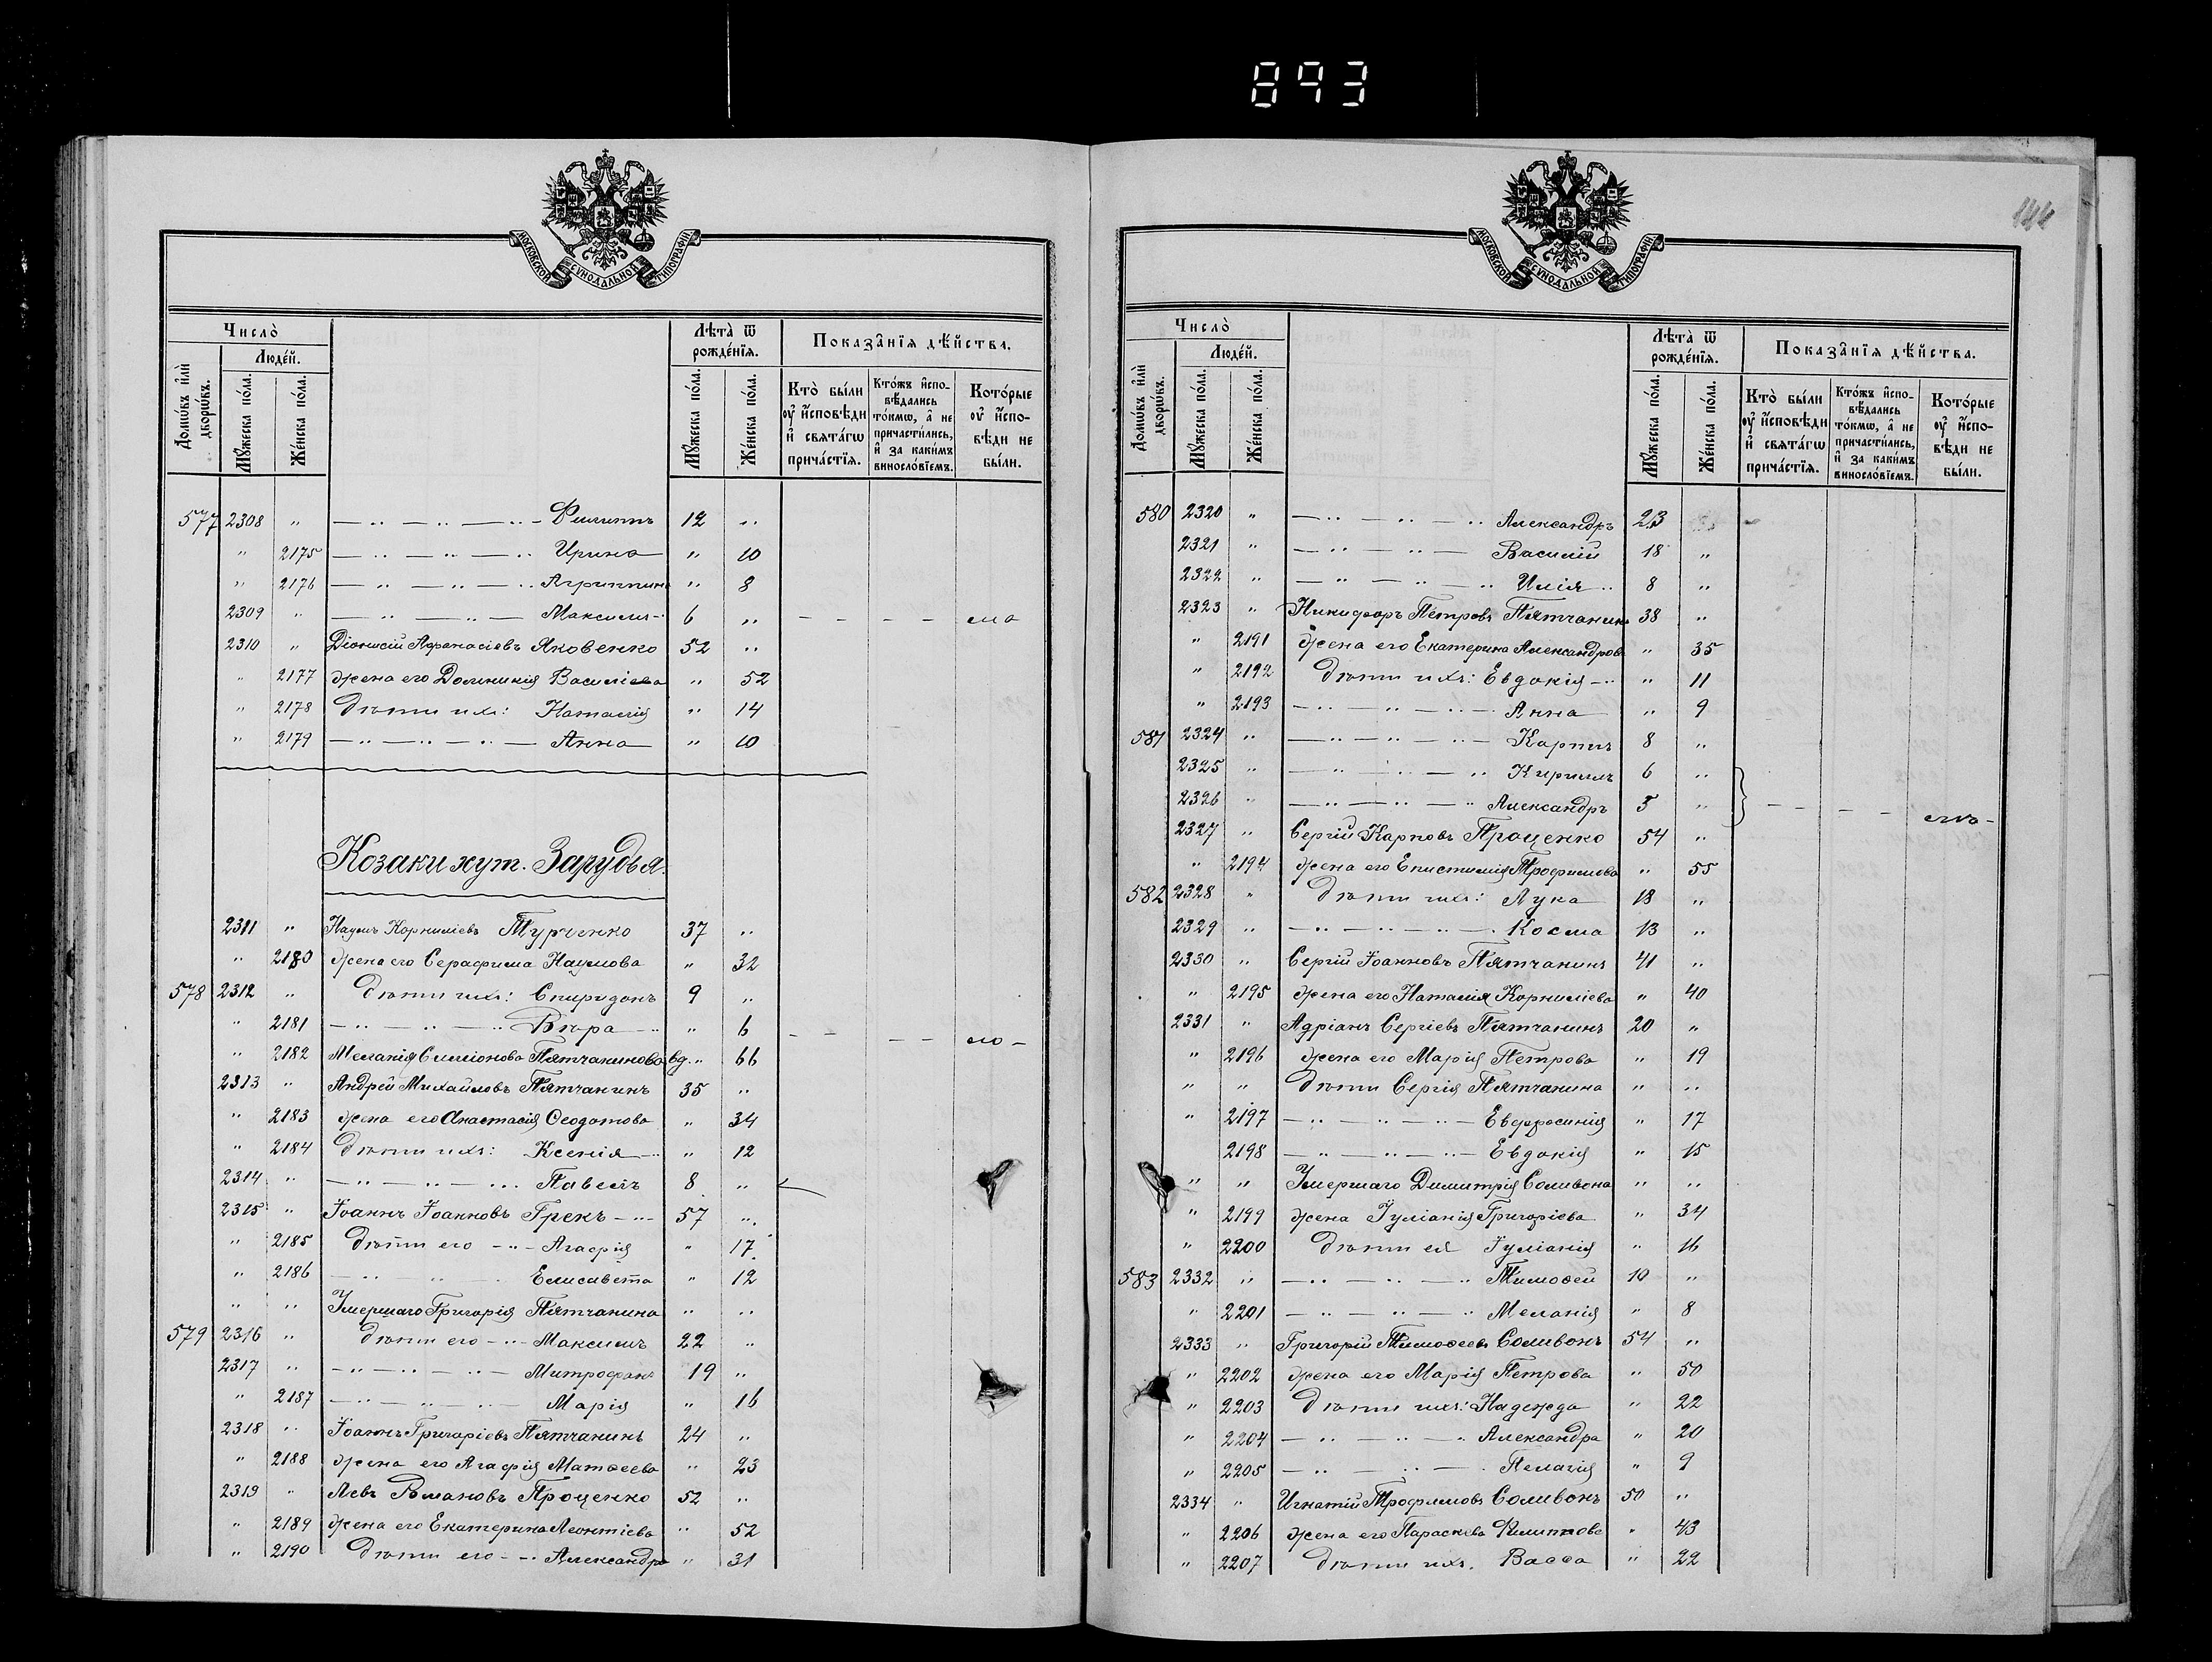 893
МОСКОВСКОЙ СУНОДАЛЬНОЙ ТИПОГРАФІИ
Число̀
Люде́й.
Домѡ́въ и҆лѝ дворѡ́въ.
Мꙋ́жеска по́ла.
Же́нска по́ла.
Лѣта̀ ѿ рожде́нїѧ.
Мꙋ́жеска по́ла.
Же́нска по́ла.
Показа̑нїѧ дѣ́йства.
Кто̀ бы́ли оу҆ и҆́сповѣди и҆ свѧта́гѡ прича́стїѧ.
Кто́жъ и҆спо-вѣ́дались то́кмѡ, а҆ не причасти́лись, и҆ за каки́мъ винословїемъ.
Кото́рые оу҆ и҆́спо-вѣди не бы́ли.
577 2308 " — " — " — " — Филиппъ 12 "
" 2175 — " — " — " Ирина — " 10
" 2176 — " — " — " Агриппина " 8
2309 " — " — " — Максимъ — 6 "
2310 " Діонисій Аѳанасіевъ Яковенко 52 "
" 2177 жена его Домникія Василіева " 52
" 2178 дѣти ихъ: Наталія " 14
" 2179 — " — " — " — Анна — " 10
Козаки хут. Зарудья.
2311 " Наумъ Корниліевъ Турченко 37 "
" 2180 жена его Серафима Наумова " 32
578 2312 " дѣти ихъ: Спиридонъ 9 "
" 2181 — " — " — " Вѣра — " " 6
" 2182 Меланія Симеонова Пятчанинова вд. " 66
2313 " Андрей Михайловъ Пятчанинъ 35 "
" 2183 жена его Анастасія Ѳеодотова " 34
" 2184 дѣти ихъ: Ксенія — " " 12
2314 " — " — " — " Павелъ 8 "
2315 " Іоаннъ Іоанновъ Грекъ — " — 57 "
" 2185 дѣти его — " — Агафія " 17
" 2186 — " " — Елисавета " 12
" " Умершаго Григорія Пятчанина " "
579 2316 " дѣти его — " — Максимъ 22 "
2317 " — " — " — " — Митрофанъ 19 "
" 2187 — " — " — " — Марія " 16
2318 " Іоаннъ Григоріевъ Пятчанинъ 24 "
" 2188 жена его Агафія Матѳеева " 23
2319 " Левъ Романовъ Проценко 52 "
" 2189 жена его Екатерина Леонтіева " 52
" 2190 дѣти его — " Александра " 31
МОСКОВСКОЙ СУНОДАЛЬНОЙ ТИПОГРАФІИ
Число̀
Люде́й.
Домѡ́въ и҆лѝ дворѡ́въ.
Мꙋ́жеска по́ла.
Же́нска по́ла.
Лѣта̀ ѿ рожде́нїѧ.
Мꙋ́жеска по́ла.
Же́нска по́ла.
Показа̑нїѧ дѣ́йства.
Кто̀ бы́ли оу҆ и҆́сповѣди и҆ свѧта́гѡ прича́стїѧ.
Кто́жъ и҆спо-вѣ́дались то́кмѡ, а҆ не причасти́лись, и҆ за каки́мъ винословїемъ.
Кото́рые оу҆ и҆́спо-вѣди не бы́ли.
580 2320 " — " — " — " Александръ 23
2321 " — " — " — Василій 18 "
2322 " — " — " — " Илія " 8 "
2323 " Никифоръ Петровъ Пятчанинъ 38 "
" 2191 жена его Екатерина Александрова " 35
" 2192 дѣти ихъ: Евдокія — " " 11
" 2193 — " — " — " — Анна " 9
581 2324 " — " — " — " — Карпъ 8 "
2325 " — " — " — " Кириллъ 6 "
2326 " — " — " — " Александръ 5 "
2327 " Сергій Карповъ Проценко 54 "
" 2194 жена его Епистимія Трофимова " 55
582 2328 " дѣти ихъ: Лука 18 "
2329 " — " — " — " — Косма 13 "
2330 " Сергій Іоанновъ Пятчанинъ 41 "
" 2195 жена его Наталія Корниліева " 40
2331 " Адріанъ Сергіевъ Пятчанинъ 20 "
" 2196 жена его Марія Петрова " 19
" " дѣти Сергія Пятчанина " "
" 2197 — " — " — " — Евфросинія " 17
2198 — " — " — " — Евдокія " 15
" " Умершаго Димитрія Соливона " "
" 2199 жена Іуліанія Григоріева " 34
" 2200 дѣти ея Іуліанія " 16
583 2332 " — " — " — " Тимоѳей 10 "
" 2201 — " — " — " Меланія " 8
2333 " Григорій Тимоѳеевъ Соливонъ 54 "
" 2202 жена его Марія Петрова " 50
" 2203 дѣти ихъ: Надежда " 22
" 2204 — " — " — " Александра " 20
" 2205 — " — " — Пелагія " 9
2334 " Игнатій Трофимовъ Соливонъ 50 "
" 2206 жена его Параскева Филиппова " 43
" 2207 дѣти ихъ. Васса " 22